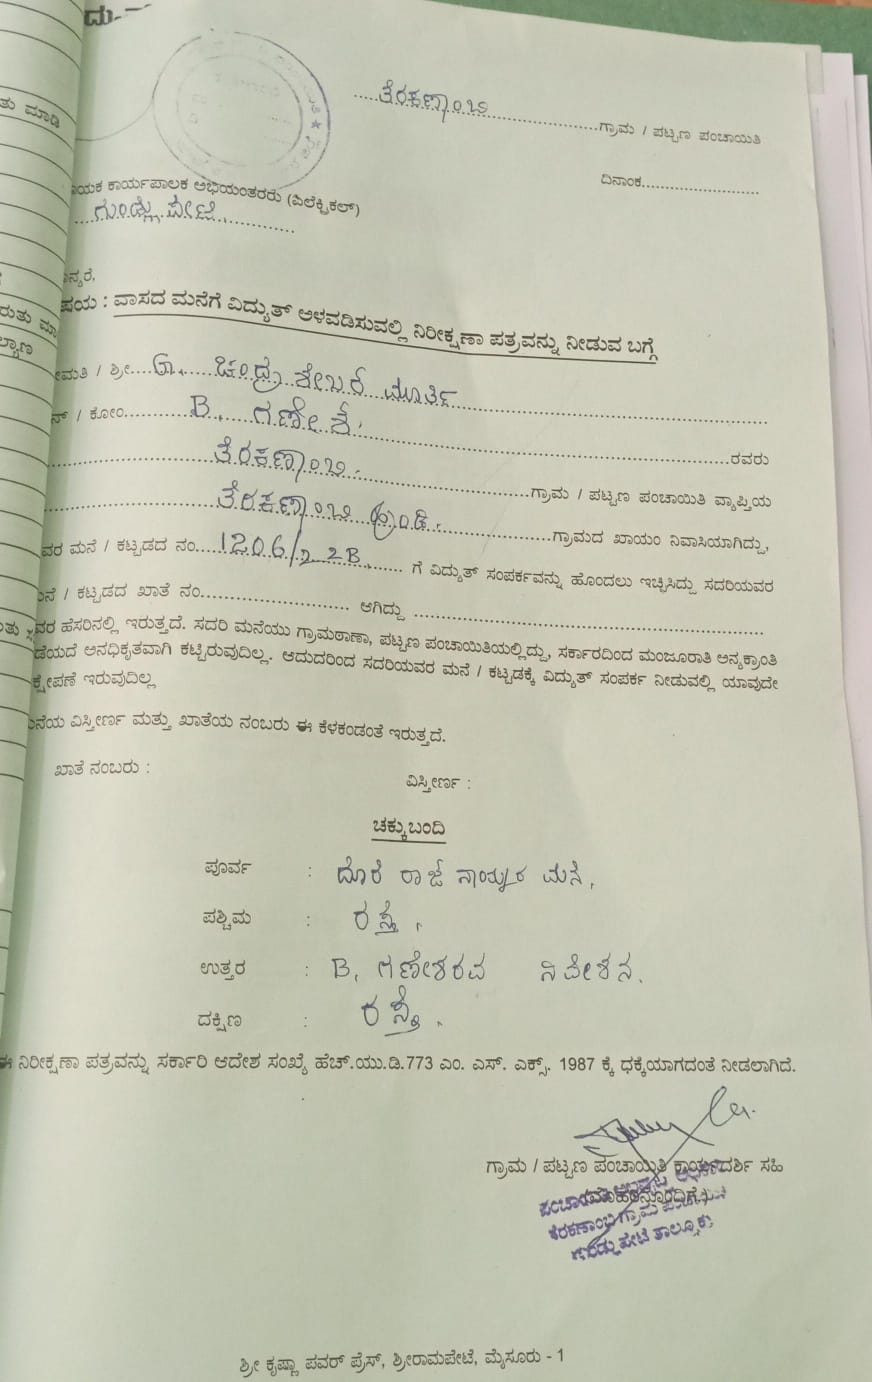 ತೆರಕಣಾಂಬಿ ಗ್ರಾಮ / ಪಟ್ಟಣ ಪಂಚಾಯಿತಿ
ದಿನಾಂಕ
ಾಯಕ ಕಾರ್ಯಪಾಲಕ ಅಭಿಯಂತರರು (ಎಲೆಕ್ಟ್ರಿಕಲ್)
ಗುಂಡ್ಲುಪೇಟೆ.
ನ್ಯರೆ,
ಷಯ : ವಾಸದ ಮನೆಗೆ ವಿದ್ಯುತ್ ಅಳವಡಿಸುವಲ್ಲಿ ನಿರೀಕ್ಷಣಾ ಪತ್ರವನ್ನು ನೀಡುವ ಬಗ್ಗೆ
ೀಮತಿ / ಶ್ರೀ G. ಚಂದ್ರಶೇಖರ ಮೂರ್ತಿ
ನ್ / ಕೋಂ B. ಗಣೇಶ. ರವರು
ತೆರಕಣಾಂಬಿ. ಗ್ರಾಮ / ಪಟ್ಟಣ ಪಂಚಾಯಿತಿ ವ್ಯಾಪ್ತಿಯ
ತೆರಕಣಾಂಬಿ ಹುಂಡಿ. ಗ್ರಾಮದ ಖಾಯಂ ನಿವಾಸಿಯಾಗಿದ್ದು,
ವರ ಮನೆ / ಕಟ್ಟಡದ ನಂ. 1206/2 2B, ಗೆ ವಿದ್ಯುತ್ ಸಂಪರ್ಕವನ್ನು ಹೊಂದಲು ಇಚ್ಛಿಸಿದ್ದು ಸದರಿಯವರ
ನೆ / ಕಟ್ಟಡದ ಖಾತೆ ನಂ. ಆಗಿದ್ದು
ವರ ಹೆಸರಿನಲ್ಲಿ ಇರುತ್ತದೆ. ಸದರಿ ಮನೆಯು ಗ್ರಾಮಠಾಣಾ, ಪಟ್ಟಣ ಪಂಚಾಯಿತಿಯಲ್ಲಿದ್ದು, ಸರ್ಕಾರದಿಂದ ಮಂಜೂರಾತಿ ಅನ್ಯಕ್ರಾಂತಿ
ಡೆಯದೆ ಅನಧಿಕೃತವಾಗಿ ಕಟ್ಟಿರುವುದಿಲ್ಲ. ಆದುದರಿಂದ ಸದರಿಯವರ ಮನೆ / ಕಟ್ಟಡಕ್ಕೆ ವಿದ್ಯುತ್ ಸಂಪರ್ಕ ನೀಡುವಲ್ಲಿ ಯಾವುದೇ
ಕ್ಷೇಪಣೆ ಇರುವುದಿಲ್ಲ
ನೆಯ ವಿಸ್ತೀರ್ಣ ಮತ್ತು ಖಾತೆಯ ನಂಬರು ಈ ಕೆಳಕಂಡಂತೆ ಇರುತ್ತದೆ.
ಖಾತೆ ನಂಬರು : ವಿಸ್ತೀರ್ಣ :
ಚಕ್ಕುಬಂದಿ
ಪೂರ್ವ : ದೊರೆ ರಾಜ ನಾಯ್ಕರ ಮನೆ,
ಪಶ್ಚಿಮ : ರಸ್ತೆ.
ಉತ್ತರ : B. ಗಣೇಶರವ ನಿವೇಶನ.
ದಕ್ಷಿಣ : ರಸ್ತೆ.
ಈ ನಿರೀಕ್ಷಣಾ ಪತ್ರವನ್ನು ಸರ್ಕಾರಿ ಆದೇಶ ಸಂಖ್ಯೆ ಹೆಚ್.ಯು.ಡಿ.773 ಎಂ. ಎಸ್. ಎಕ್ಸ್. 1987 ಕ್ಕೆ ಧಕ್ಕೆಯಾಗದಂತೆ ನೀಡಲಾಗಿದೆ.
ಗ್ರಾಮ / ಪಟ್ಟಣ ಪಂಚಾಯಿತಿ ಕಾರ್ಯದರ್ಶಿ ಸಹಿ
(ಮೊಹರಿನೊಂದಿಗೆ)
ತೆರಕಣಾಂಬಿ ಗ್ರಾಮ ಪಂಚಾಯಿತಿ
ಗುಂಡ್ಲುಪೇಟೆ ತಾಲ್ಲೂಕು
ಶ್ರೀ ಕೃಷ್ಣಾ ಪವರ್ ಪ್ರೆಸ್, ಶ್ರೀರಾಮಪೇಟೆ, ಮೈಸೂರು - 1